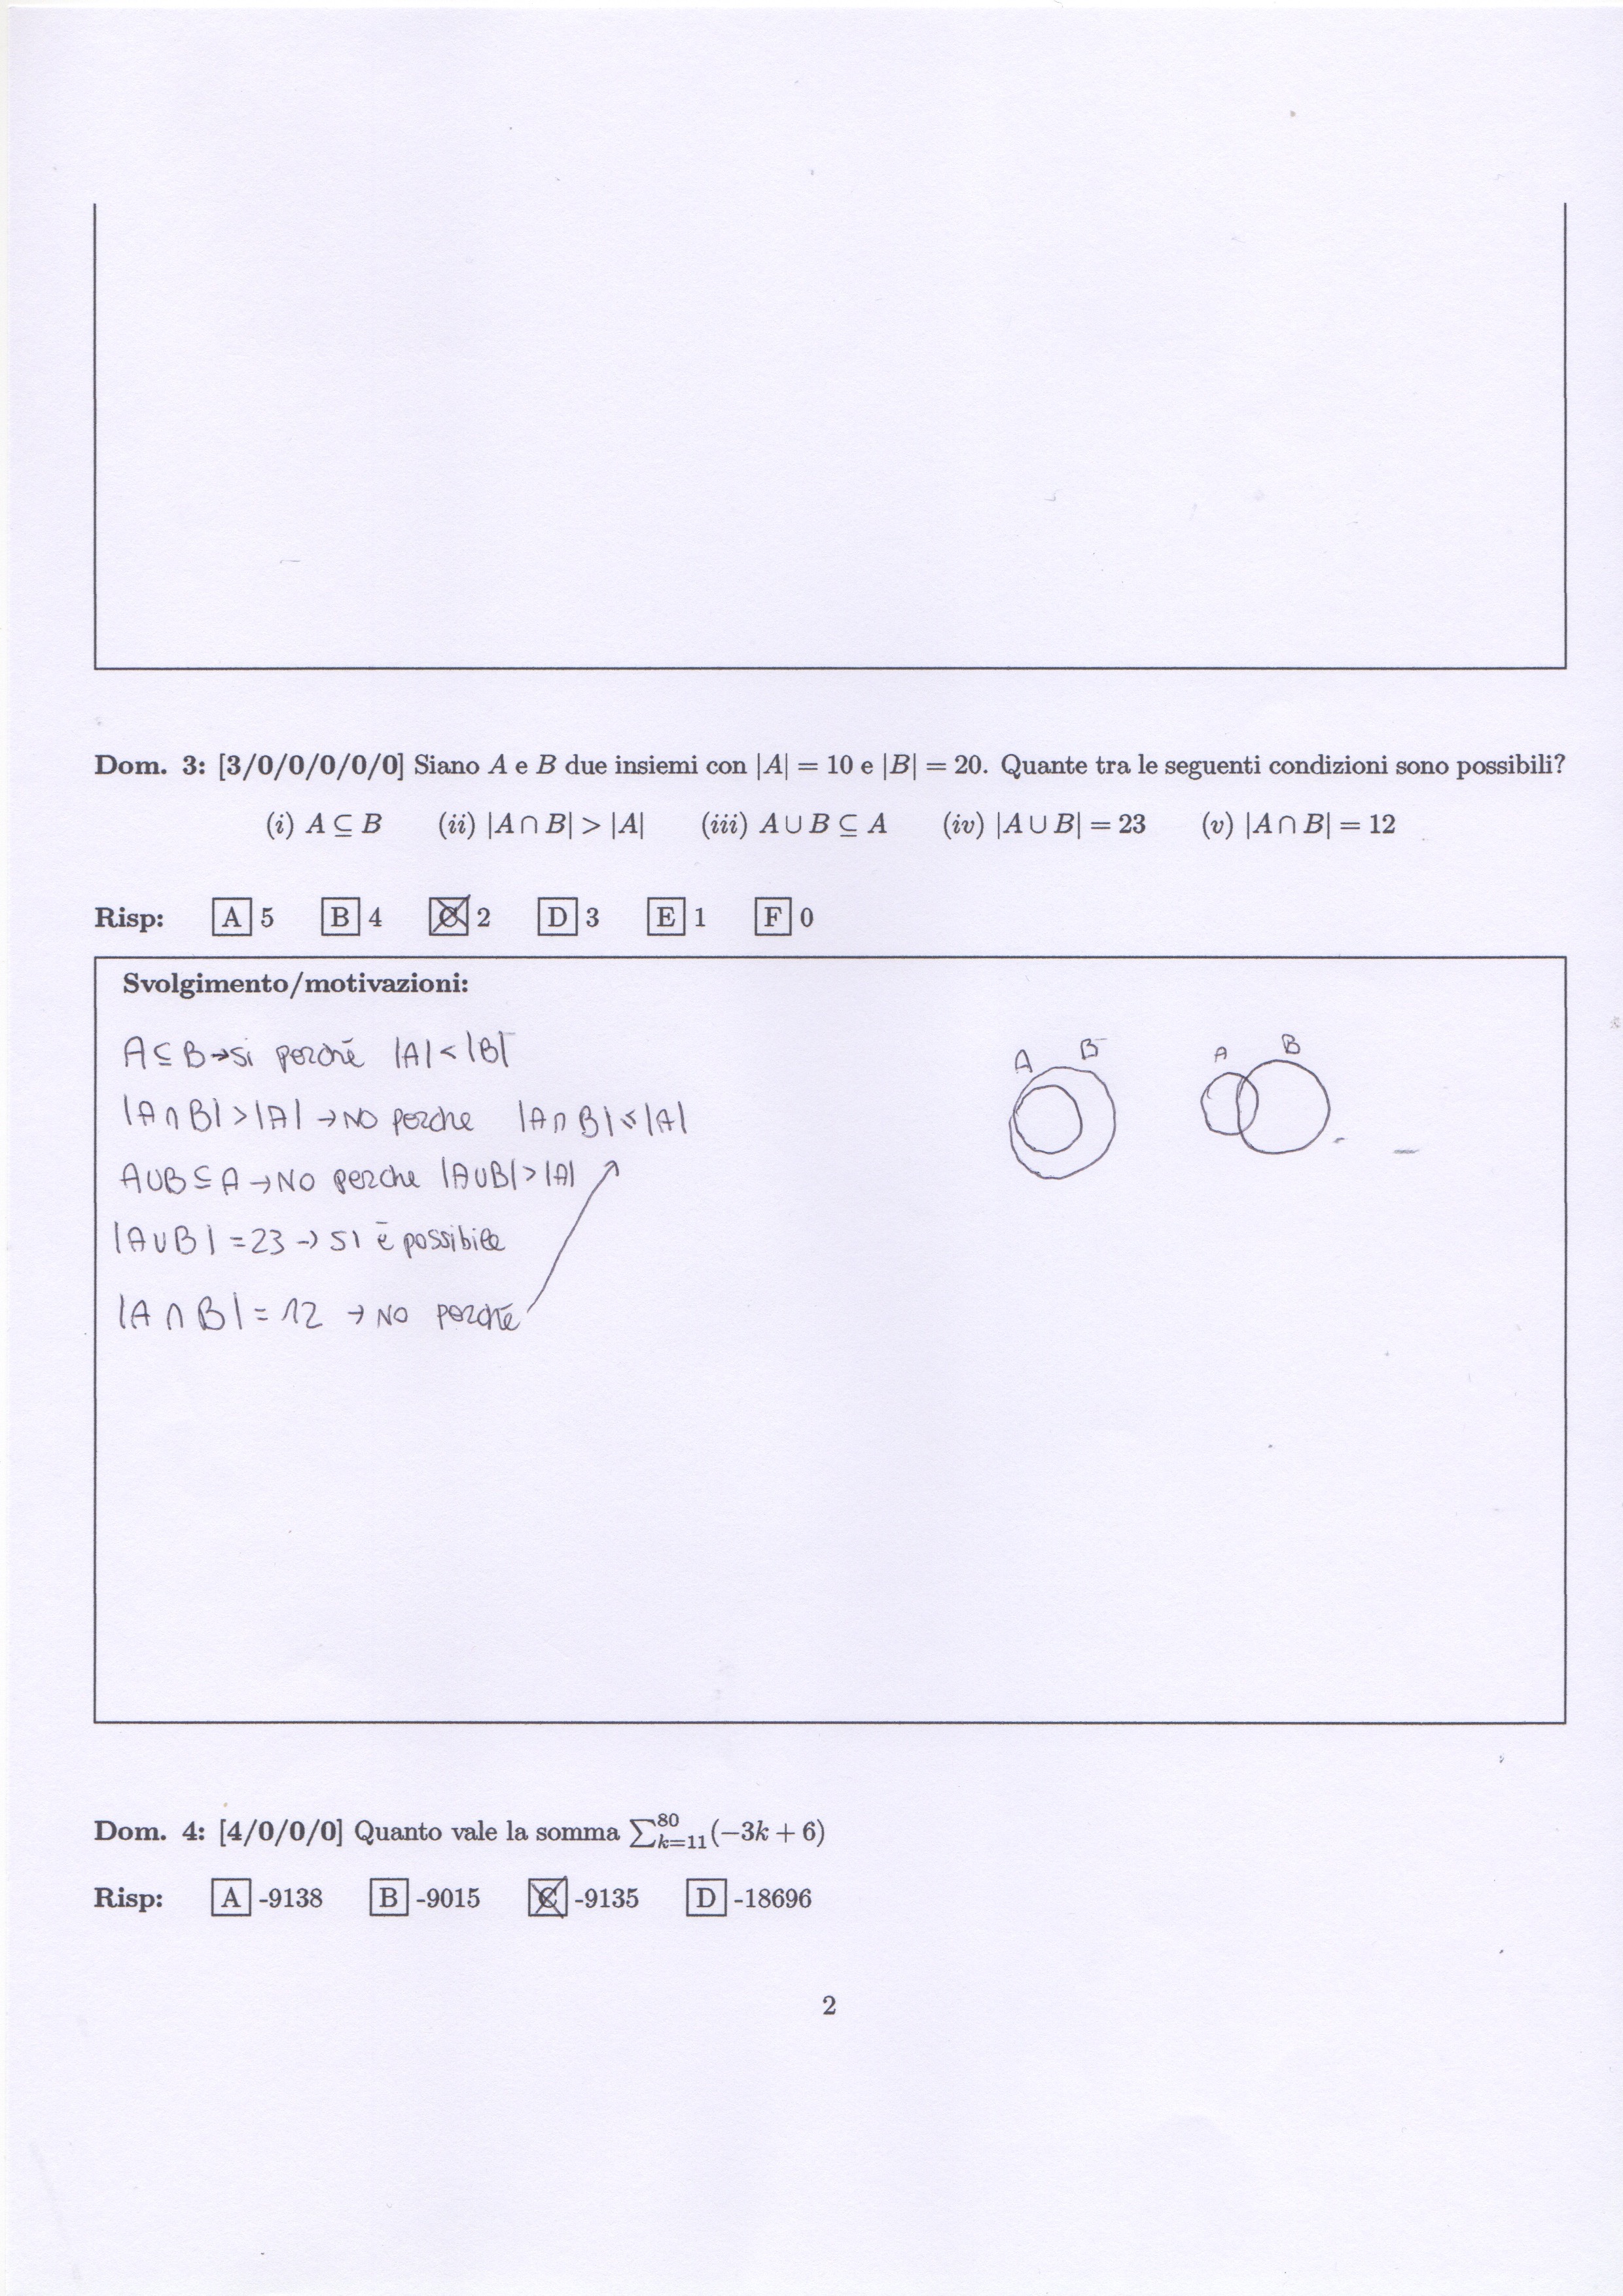 Dom. 3: [3/0/0/0/0/0] Siano A e B due insiemi con |A| = 10 e |B| = 20. Quante tra le seguenti condizioni sono possibili?
(i) A ⊆ B (ii) |A ∩ B| > |A| (iii) A ∪ B ⊆ A (iv) |A ∪ B| = 23 (v) |A ∩ B| = 12
Risp: A 5 B 4 C 2 D 3 E 1 F 0
Svolgimento/motivazioni:
A ⊆ B → si perchē |A| < |B|
|A ∩ B| > |A| → NO perche |A ∩ B| ≤ |A|
A ∪ B ⊆ A → NO perche |A ∪ B| > |A|
|A ∪ B| = 23 → SI ē possibile
|A ∩ B| = 12 → NO perchē
A B
A B
Dom. 4: [4/0/0/0] Quanto vale la somma ∑_{k=11}^{80}(−3k + 6)
Risp: A -9138 B -9015 C -9135 D -18696
2